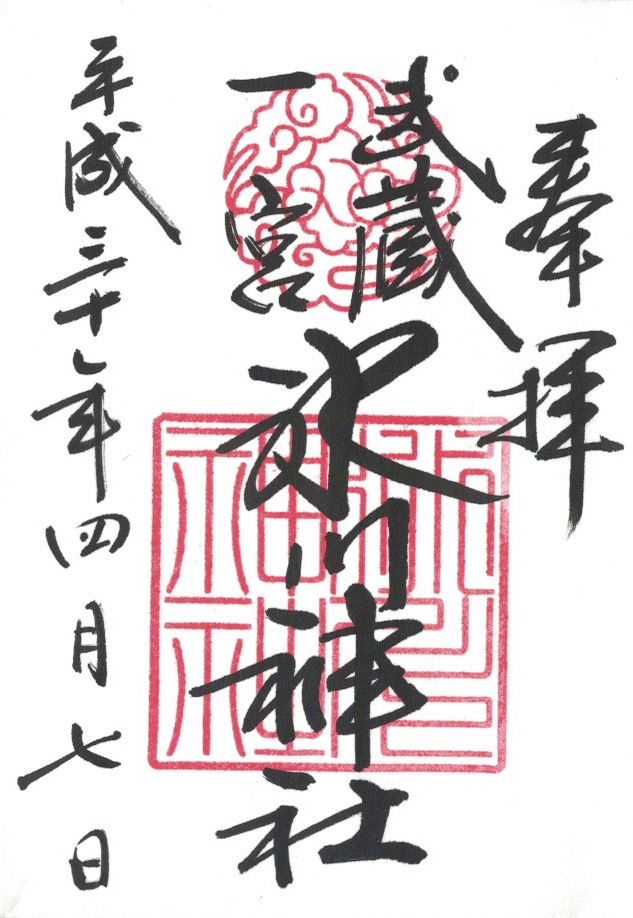 奉拝
武蔵
一宮
氷川神社
平成三十一年四月七日